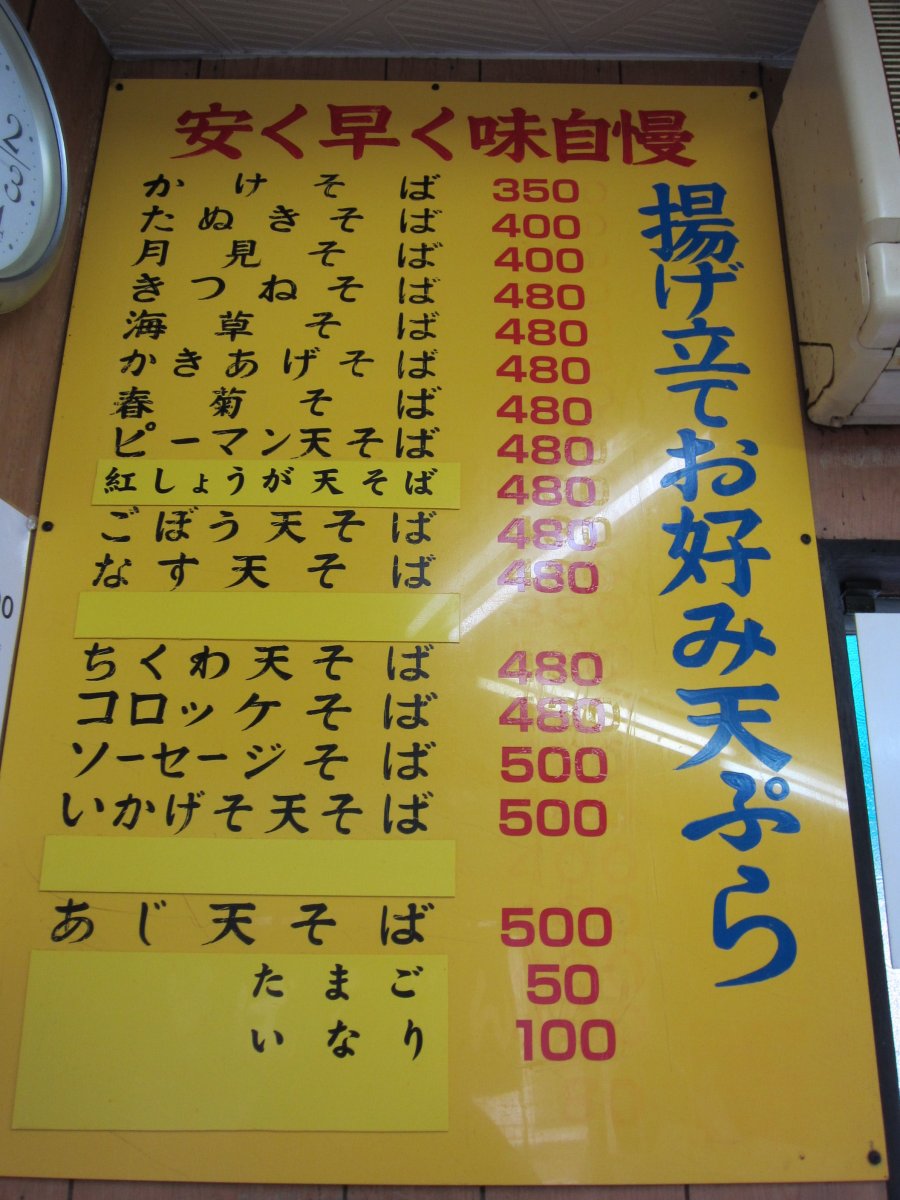 安く早く味自慢
かけそば 350
たぬきそば 400
月見そば 400
きつねそば 480
海草そば 480
かきあげそば 480
春菊そば 480
ピーマン天そば 480
紅しょうが天そば 480
ごぼう天そば 480
なす天そば 480
ちくわ天そば 480
コロッケそば 480
ソーセージそば 500
いかげそ天そば 500
あじ天そば 500
たまご 50
いなり 100
揚げ立てお好み天ぷら
2
3